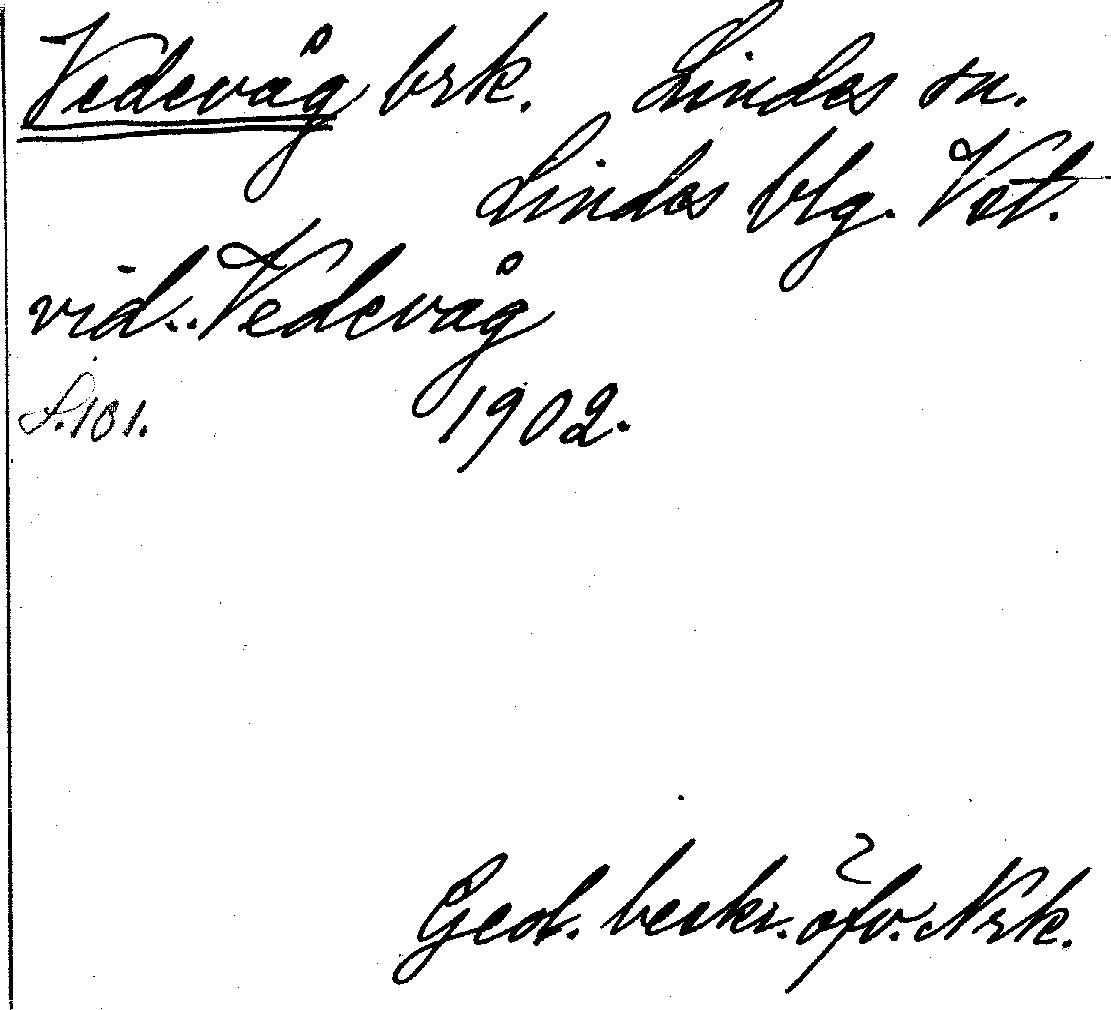 Vedevåg brk. Lindes sn.
Lindes blg. Vst.
vid.. Vedevåg
S. 101. 1902.
Ged. beskr. öfv. Nrk.